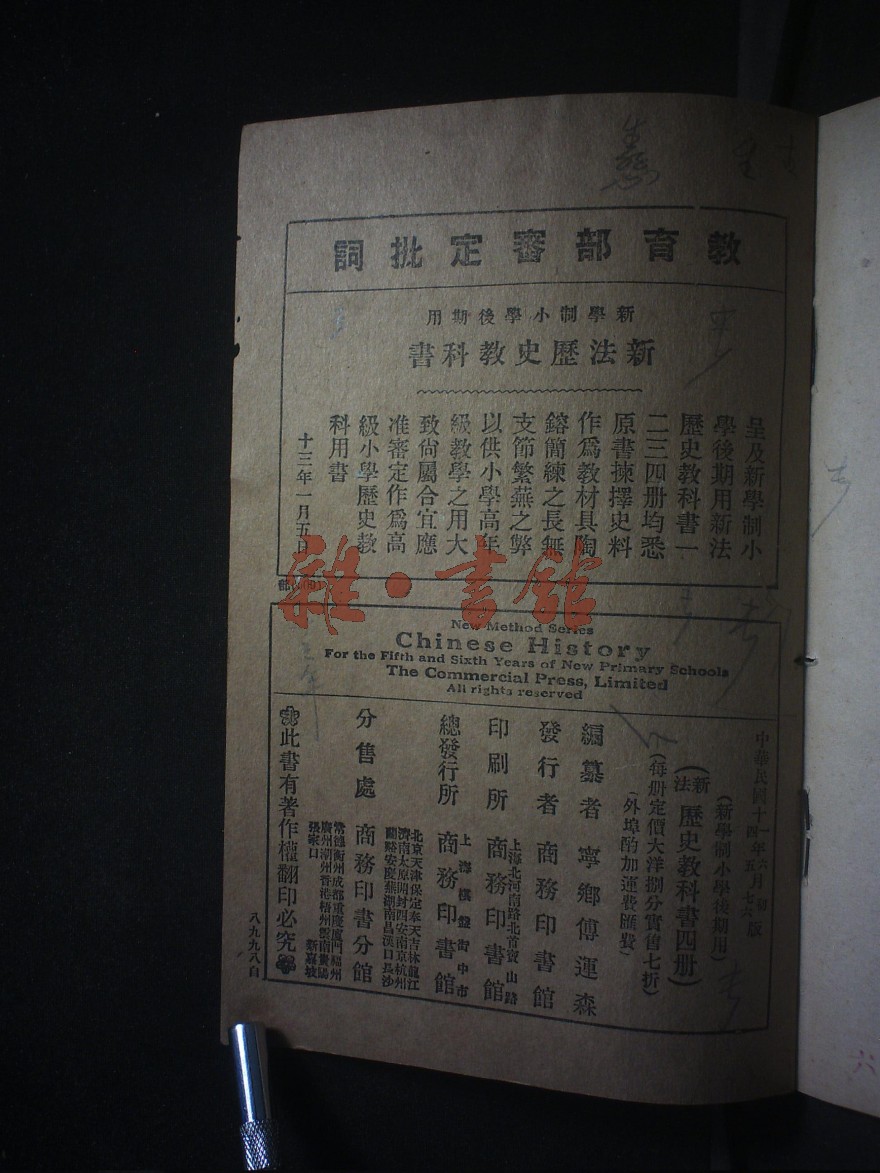 教育部審定批詞
新學制小學後期用
新法歷史教科書
呈及新學制小
學後期用新法
歷史教科書一
二三四册均悉
原書揀擇史料
作爲教材具陶
鎔簡練之長無
支節繁蕪之弊
以供小學高年
級教學之用大
致尙屬合宜應
准審定作爲高
級小學歷史教
科用書
十三年一月五日
雜·書館
New Method Series
Chinese History
For the Fifth and Sixth Years of New Primary Schools
The Commercial Press, Limited
All rights reserved
中華民國十一年六月初版
(新學制小學後期用)
(新法)歷史教科書四册)
(每册定價大洋捌分實售七折)
(外埠酌加運費匯費)
編纂者 寧鄉傅運森
發行者 商務印書館
印刷所 上海北河南路北首寶山路 商務印書館
總發行所 上海棋盤街中市 商務印書館
分售處 商務印書分館
北京天津保定奉天吉林龍江
濟南太原開封西安南京杭州
蘭谿安慶蕪湖南昌漢口長沙
常德衡州成都重慶廈門福州
廣州潮州香港梧州雲南貴陽
張家口 新嘉坡
此書有著作權翻印必究
八九九八自